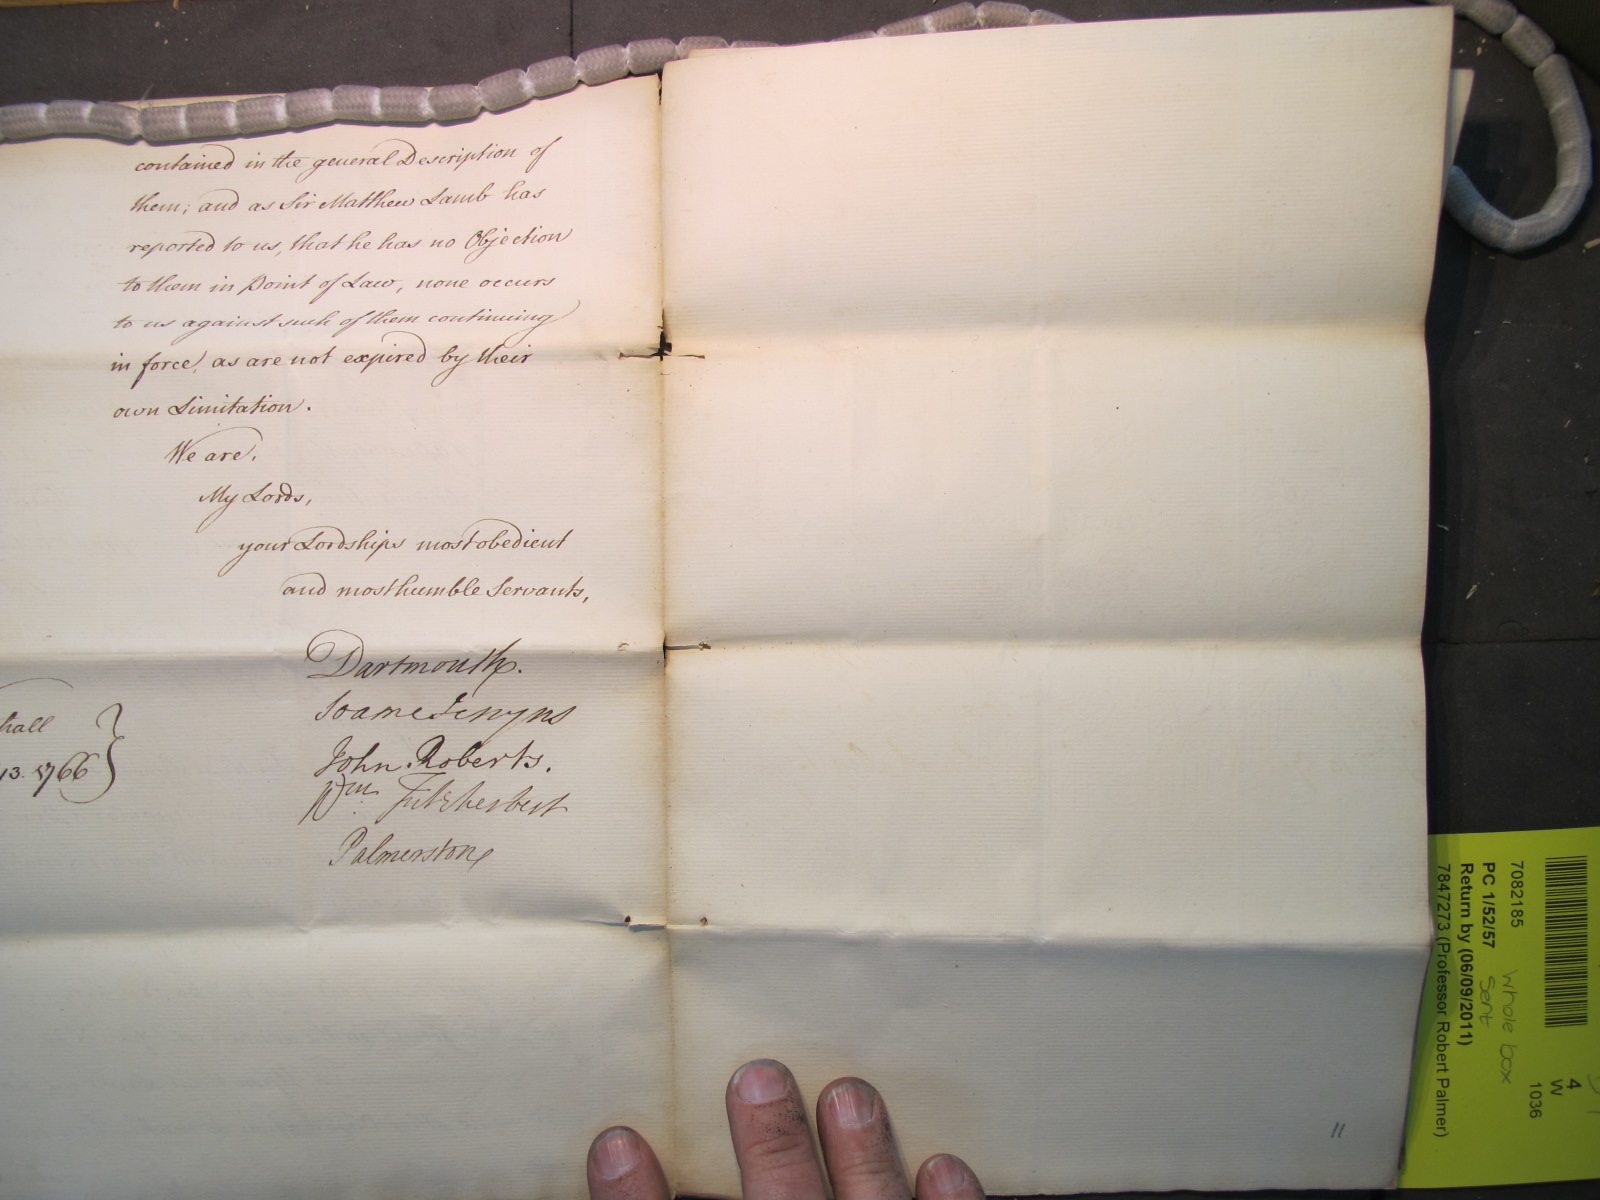 contained in the general Description of
them; and as Sir Matthew Lamb has
reported to us, that he has no Objection
to them in Point of Law, none occurs
to us against such of them continuing
in force, as are not expired by their
own Limitation.
We are,
My Lords,
your Lordships most obedient
and most humble Servants,
Dartmouth.
Soame Jenyns
John Roberts.
Wm. Fitzherbert
Palmerston
hall
13. 1766
11
7082185
PC 1/52/57
Return by (06/09/2011)
7847273 (Professor Robert Palmer)
whole box
sent
4
W
1036